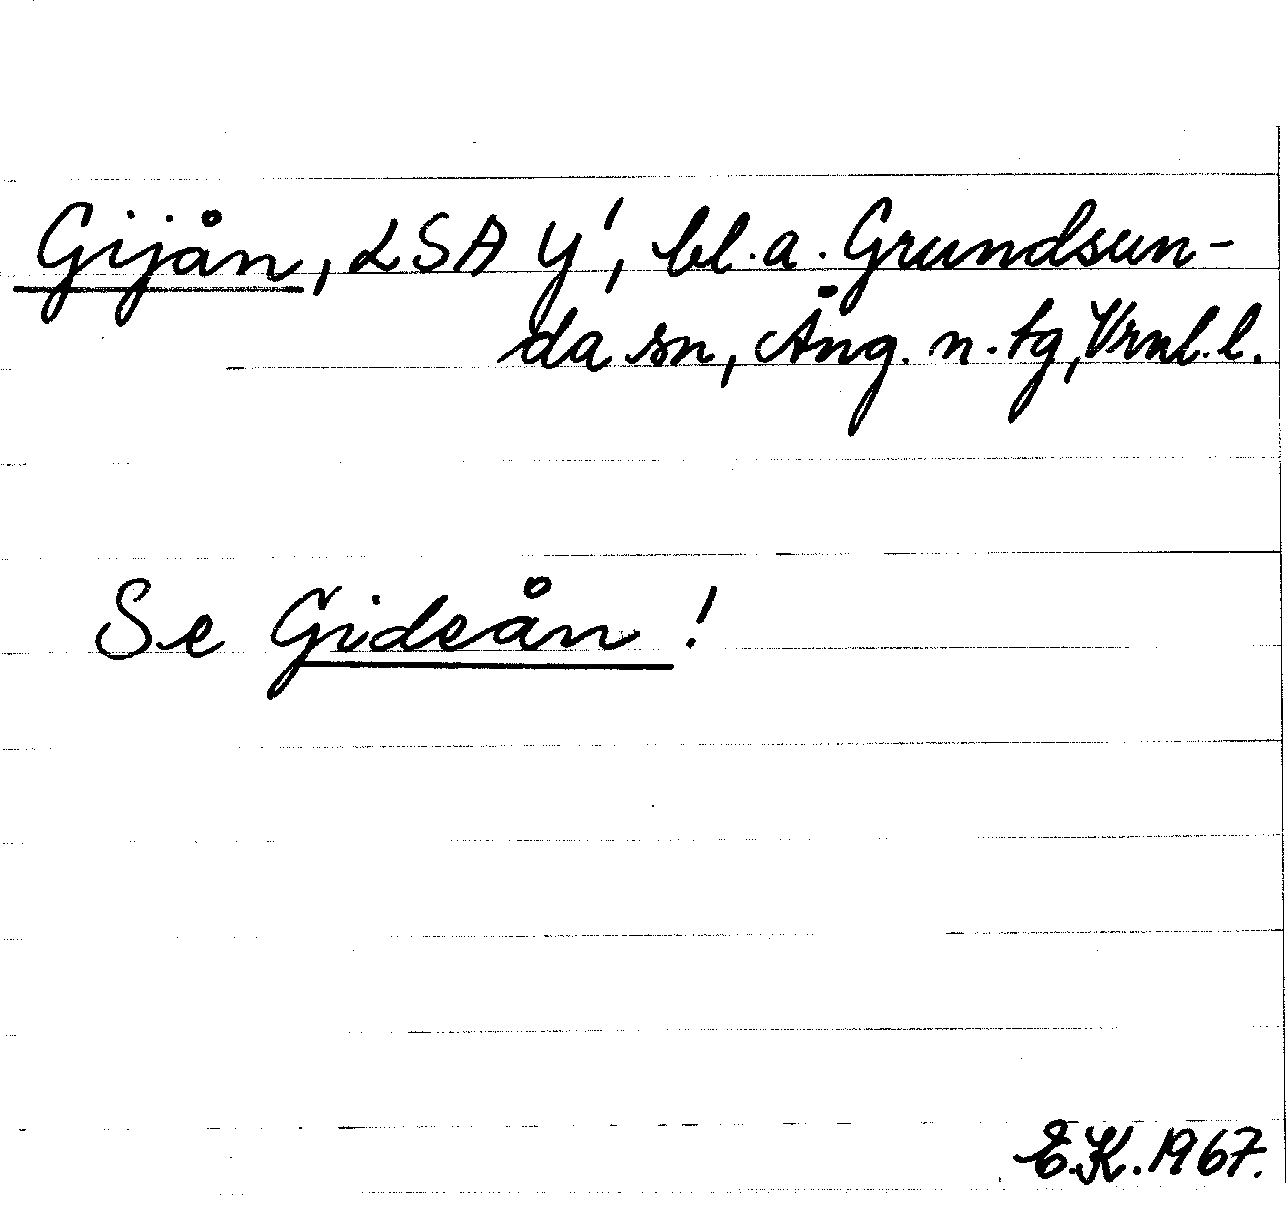 Gijån, LSA Y', bl.a. Grundsun-
da sn, Ång. n. tg, Vrnl. l.
Se Gideån!
E.K. 1967.